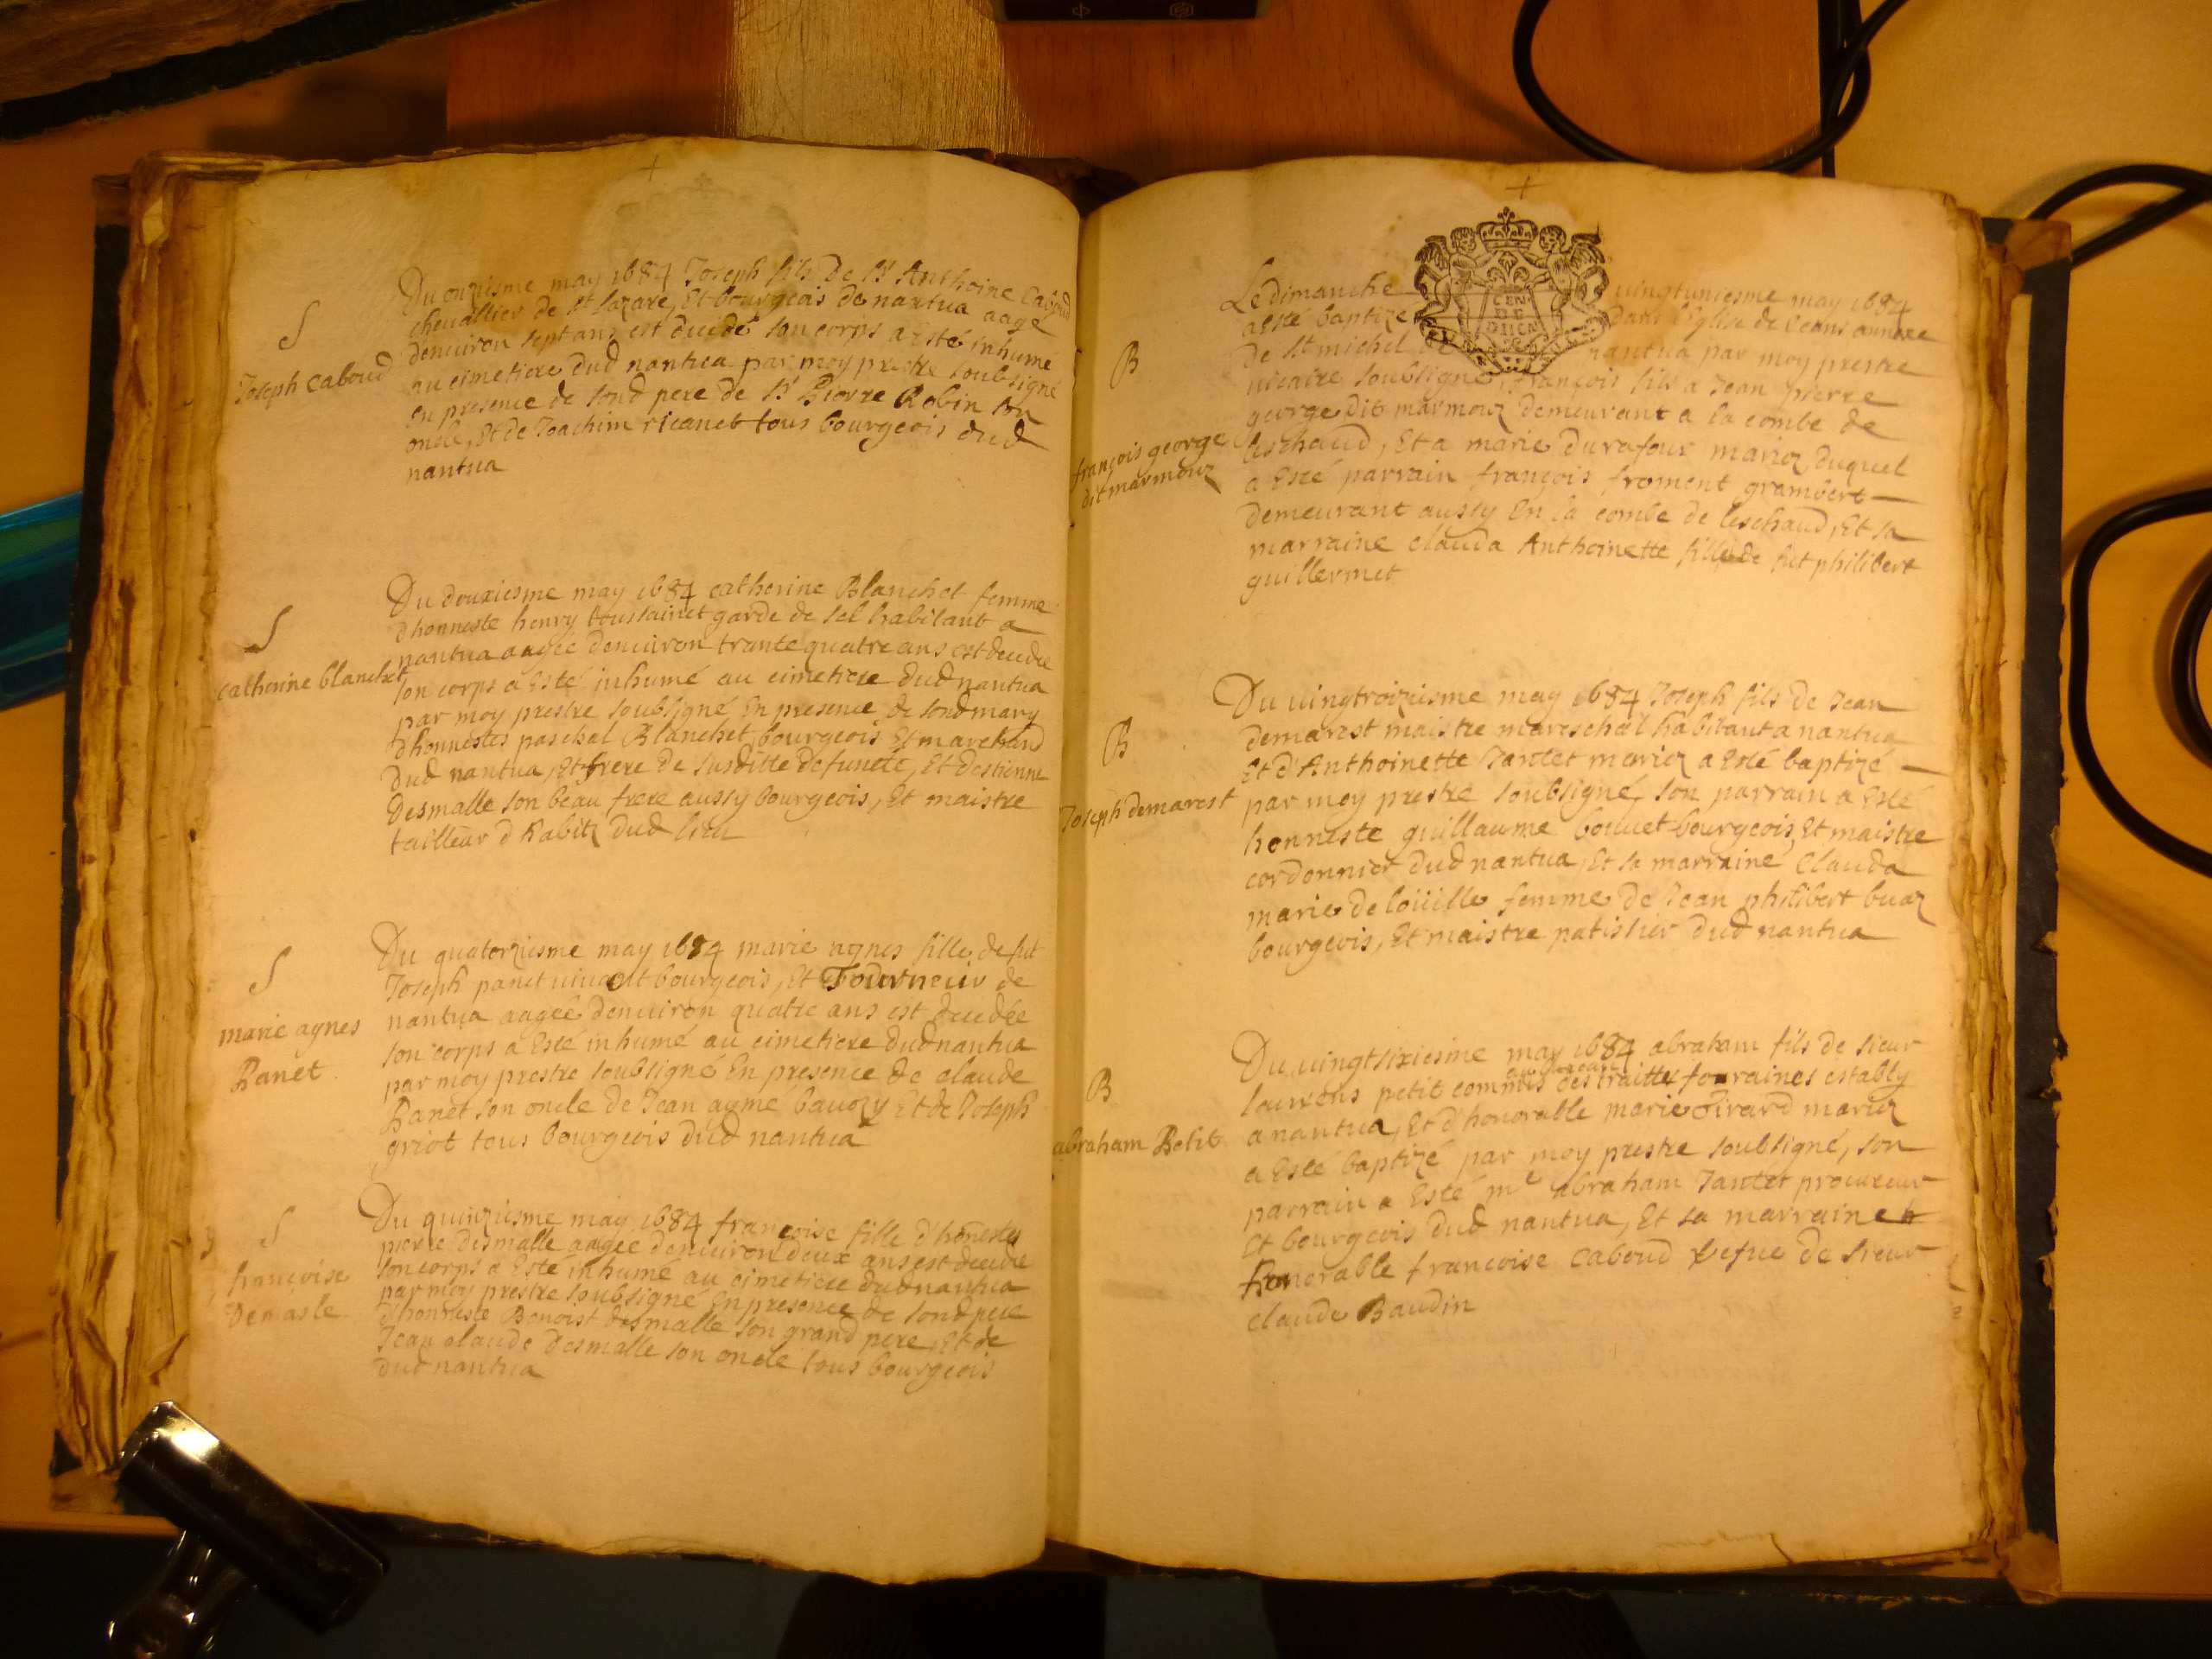 S
Joseph Caboud
Du onziesme may 1684 Joseph fils de Sr Anthoine Caboud
chevallier de St lazare, Et bourgeois de nantua aage
denviron sept ans est decidé son corps a esté inhumé
au cimetiere dud nantua par moy prestre soubsigné
en presence de sond pere de Sr Pierre Robin son
oncle, Et de Joachim ricanet tous bourgeois dud
nantua
S
catherine blanchet
Du douxiesme may 1684 catherine Blanchet femme
d'honneste henry toussainet garde de sel habitant a
nantua aagée denviron trante quatre ans est decedée
son corps a Esté inhumé au cimetiere dud nantua
par moy prestre soubsigné En presence de sond mary
d'honnestes paschal Blanchet bourgeois Et marchand
dud nantua, Et frere de susditte defunete, Et d'estienne
Desmalle son beau frere aussy bourgeois, Et maistre
tailleur d habitz dud lieu
S
marie agnes
Panet
Du quatorziesme may 1684 marie agnes fille de fut
Joseph panet vivant bourgeois, Et Tourneur de
nantua aagée denviron quatre ans est decedée
son corps a Esté inhumé au cimetiere dud nantua
par moy prestre soubsigné En presence de claude
Panet son oncle de Jean aymé bavozy Et de Joseph
griot tous bourgeois dud nantua
S
françoise
Demasle
Du quinziesme may 1684 françoise fille d'honeste
pierre desmalle aagée denviron deux ans est decedée
son corps a Esté inhumé au cimetiere dud nantua
par moy prestre soubsigné En presence de sond pere
d'honneste Benoist desmalle son grand pere, Et de
Jean claude desmalle son oncle tous bourgeois
dud nantua
B
françois george
dit marmouz
Le dimanche vingtuniesme may 1684
a esté baptizé dans l'Eglise de ceans annexe
de St michel de nantua par moy prestre
vicaire soubsigné, françois fils a Jean pierre
george dit marmouz demeurant a la combe de
leschaud, Et a marie durafour mariez duquel
a Esté parrain françois froment grambert
demeurant aussy En la combe de leschaud, Et sa
marraine clauda Anthoinette fille de fut philibert
guillermet
B
Joseph demarest
Du vingtroiziesme may 1684 Joseph fils de Jean
demarest maistre mareschal habitant a nantua
Et d'Anthoinette Jantet mariez a Esté baptizé
par moy prestre soubsigné, son parrain a Esté
honneste guillaume bouvet bourgeois, Et maistre
cordonnier dud nantua, Et sa marraine Clauda
marie de loüille femme de Jean philibert buaz
bourgeois, Et maistre patissier dud nantua
B
abraham Petit
Du vingtsixiesme may 1684 abraham fils de sieur
lourens petit commis au bureau des traittes foraines estably
a nantua, Et d'honorable marie Girard mariez
a Esté baptizé par moy prestre soubsigné, son
parrain a Esté me abraham Jantet procureur
Et bourgeois dud nantua, Et sa marraine
honorable francoise Caboud vefue de sieur
claude Baudin